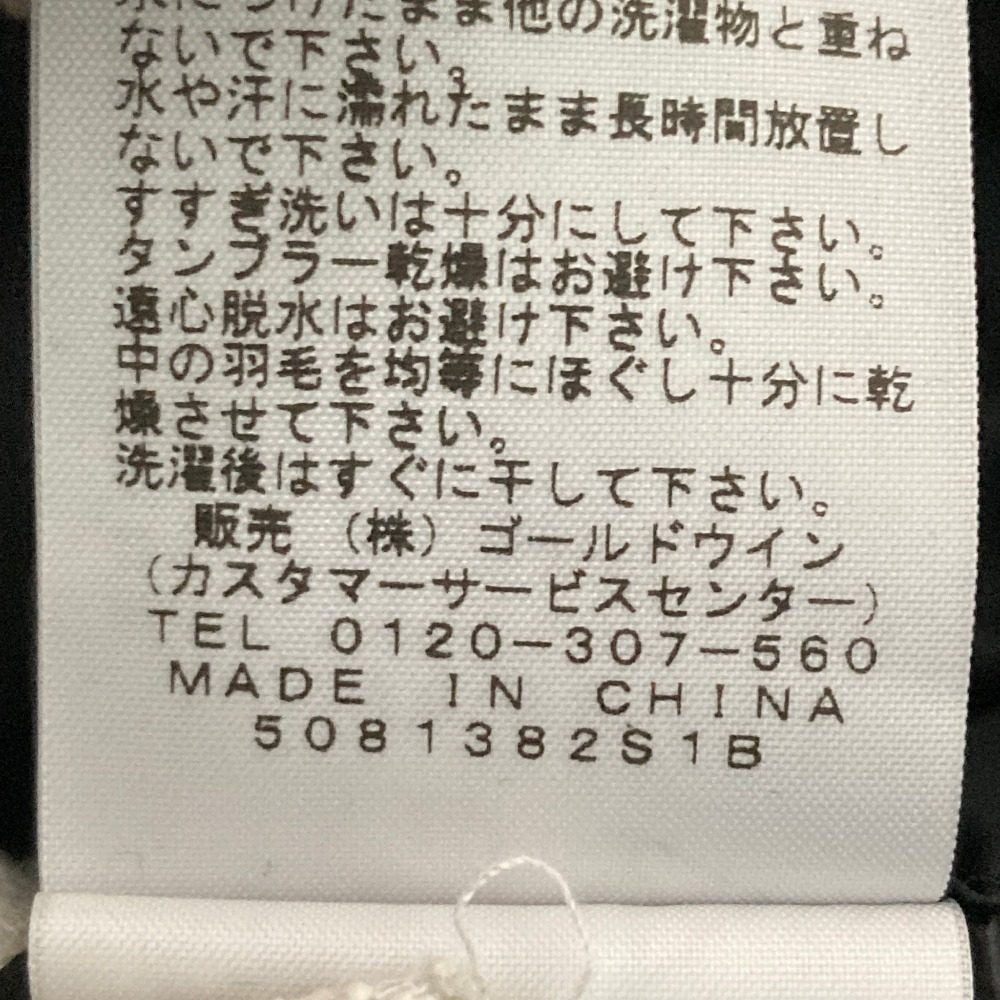 まま他の洗濯物と重ね
ないで下さい。
水や汗に濡れたまま長時間放置し
ないで下さい。
すすぎ洗いは十分にして下さい。
タンブラー乾燥はお避け下さい。
遠心脱水はお避け下さい。
中の羽毛を均等にほぐし十分に乾
燥させて下さい。
洗濯後はすぐに干して下さい。
販売 (株) ゴールドウイン
(カスタマーサービスセンター)
TEL 0120-307-560
MADE IN CHINA
5081382S1B